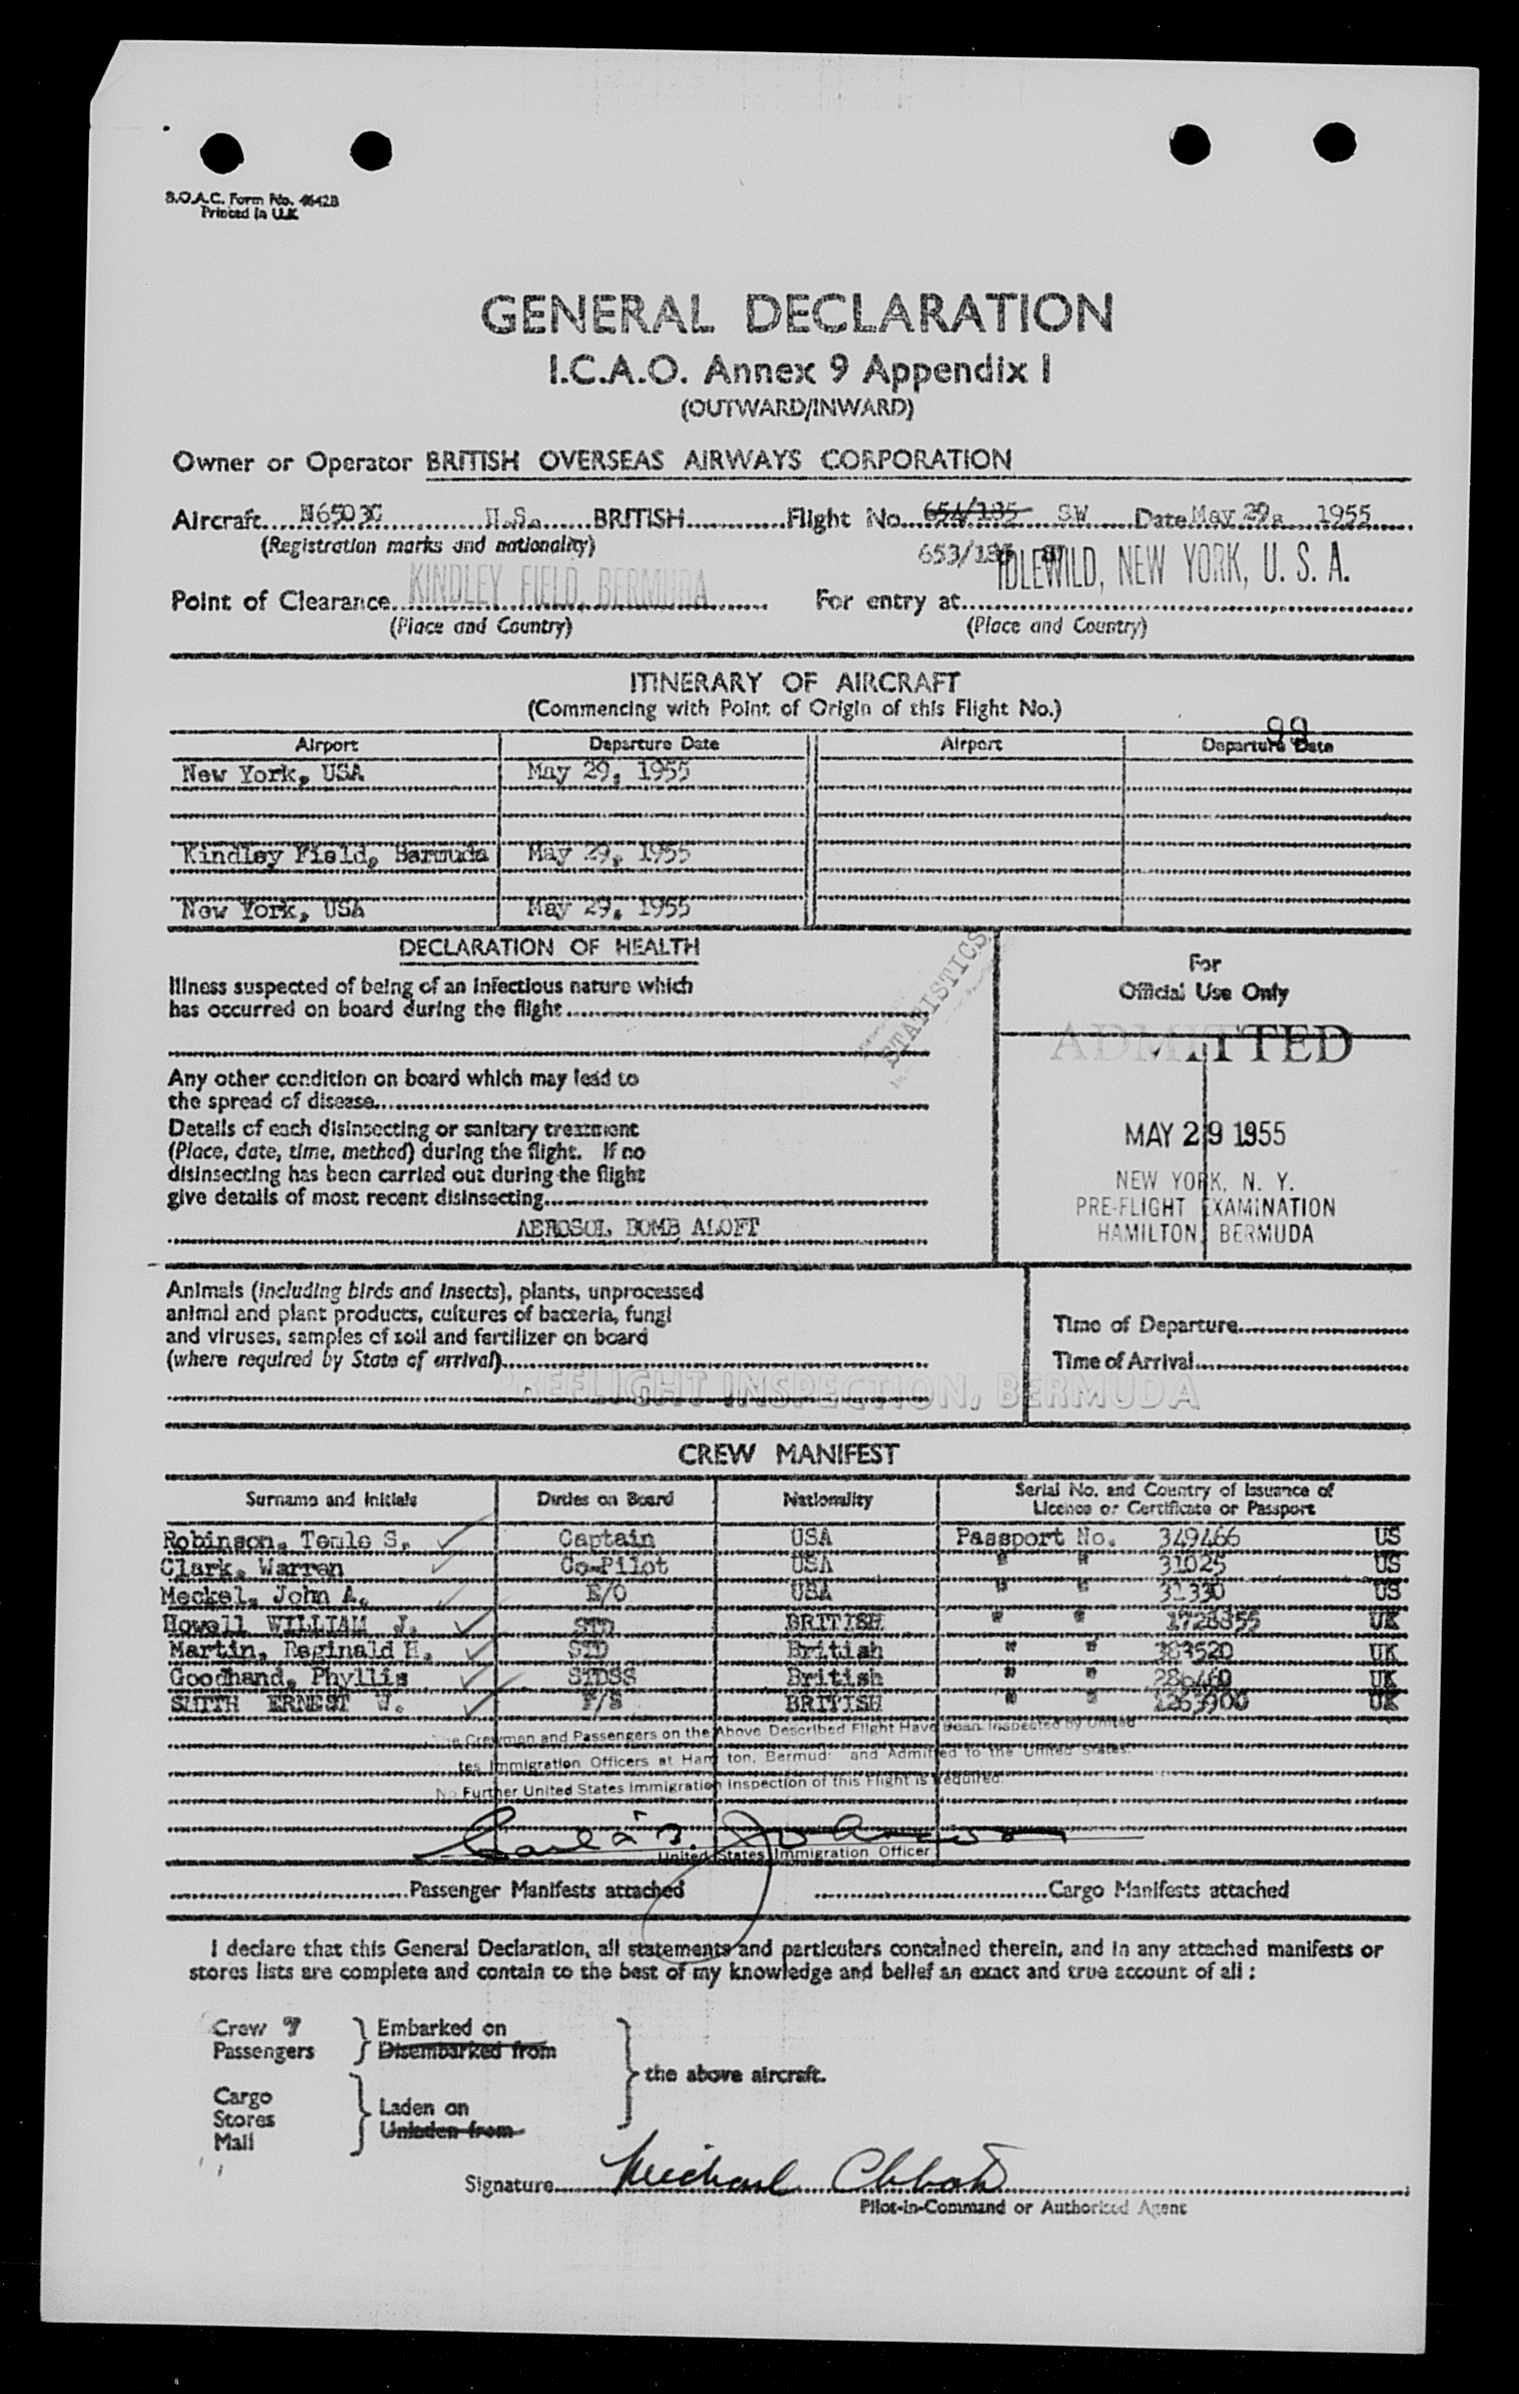 B.O.A.C. Form No. 4642B
Printed in U.K.
GENERAL DECLARATION
I.C.A.O. Annex 9 Appendix I
(OUTWARD/INWARD)
Owner or Operator BRITISH OVERSEAS AIRWAYS CORPORATION
Aircraft N6503C U.S. BRITISH Flight No. 654/185 SW Date May 29, 1955
(Registration marks and nationality) 653/
IDLEWILD, NEW YORK, U. S. A.
Point of Clearance KINDLEY FIELD, BERMUDA For entry at
(Place and Country) (Place and Country)
ITINERARY OF AIRCRAFT
(Commencing with Point of Origin of this Flight No.)
99
Airport Departure Date Airport Departure Date
New York, USA May 29, 1955
Kindley Field, Bermuda May 29, 1955
New York, USA May 29, 1955
DECLARATION OF HEALTH
Illness suspected of being of an infectious nature which
has occurred on board during the flight
STATISTICS
Any other condition on board which may lead to
the spread of disease
Details of each disinsecting or sanitary treatment
(Place, date, time, method) during the flight. If no
disinsecting has been carried out during the flight
give details of most recent disinsecting
AEROSOL BOMB ALOFT
For
Official Use Only
ADMITTED
MAY 29 1955
NEW YORK, N. Y.
PRE-FLIGHT EXAMINATION
HAMILTON, BERMUDA
Animals (including birds and insects), plants, unprocessed
animal and plant products, cultures of bacteria, fungi
and viruses, samples of soil and fertilizer on board
(where required by State of arrival)
Time of Departure
Time of Arrival
PREFLIGHT INSPECTION, BERMUDA
CREW MANIFEST
Surname and Initials Duties on Board Nationality Serial No. and Country of Issuance of
Licence or Certificate or Passport
Robinson, Temle S. Captain USA Passport No. 349466 US
Clark, Warren Co-Pilot USA " " 31025 US
Meckel, John A. E/O USA " " 31330 US
Howell WILLIAM J. STD BRITISH " " 1728355 UK
Martin, Reginald H. STD British " " 383520 UK
Goodhand, Phyllis STDSS British " " 286460 UK
SMITH ERNEST W. F/S BRITISH " " 1263900 UK
The Crewmen and Passengers on the Above Described Flight Have Been Inspected by United
tes Immigration Officers at Ham ton, Bermud and Admitted to the United States.
No Further United States Immigration Inspection of this Flight is Required.
United States Immigration Officer
Passenger Manifests attached Cargo Manifests attached
I declare that this General Declaration, all statements and particulars contained therein, and in any attached manifests or
stores lists are complete and contain to the best of my knowledge and belief an exact and true account of all :
Crew 7 Embarked on
Passengers Disembarked from
the above aircraft.
Cargo
Stores Laden on
Mail Unladen from
Signature Michael
Pilot-in-Command or Authorised Agent